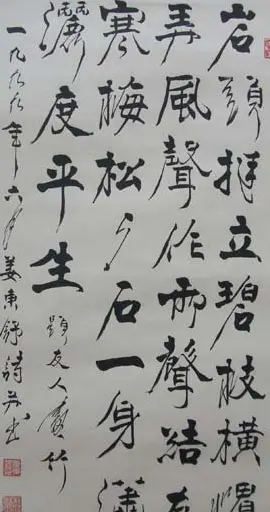 岩頭挺立碧枝橫慣
弄風聲作雨聲結友
寒梅松与石一身瀟
灑度平生 題友人畫竹
一九九九年六月姜東舒詩并書